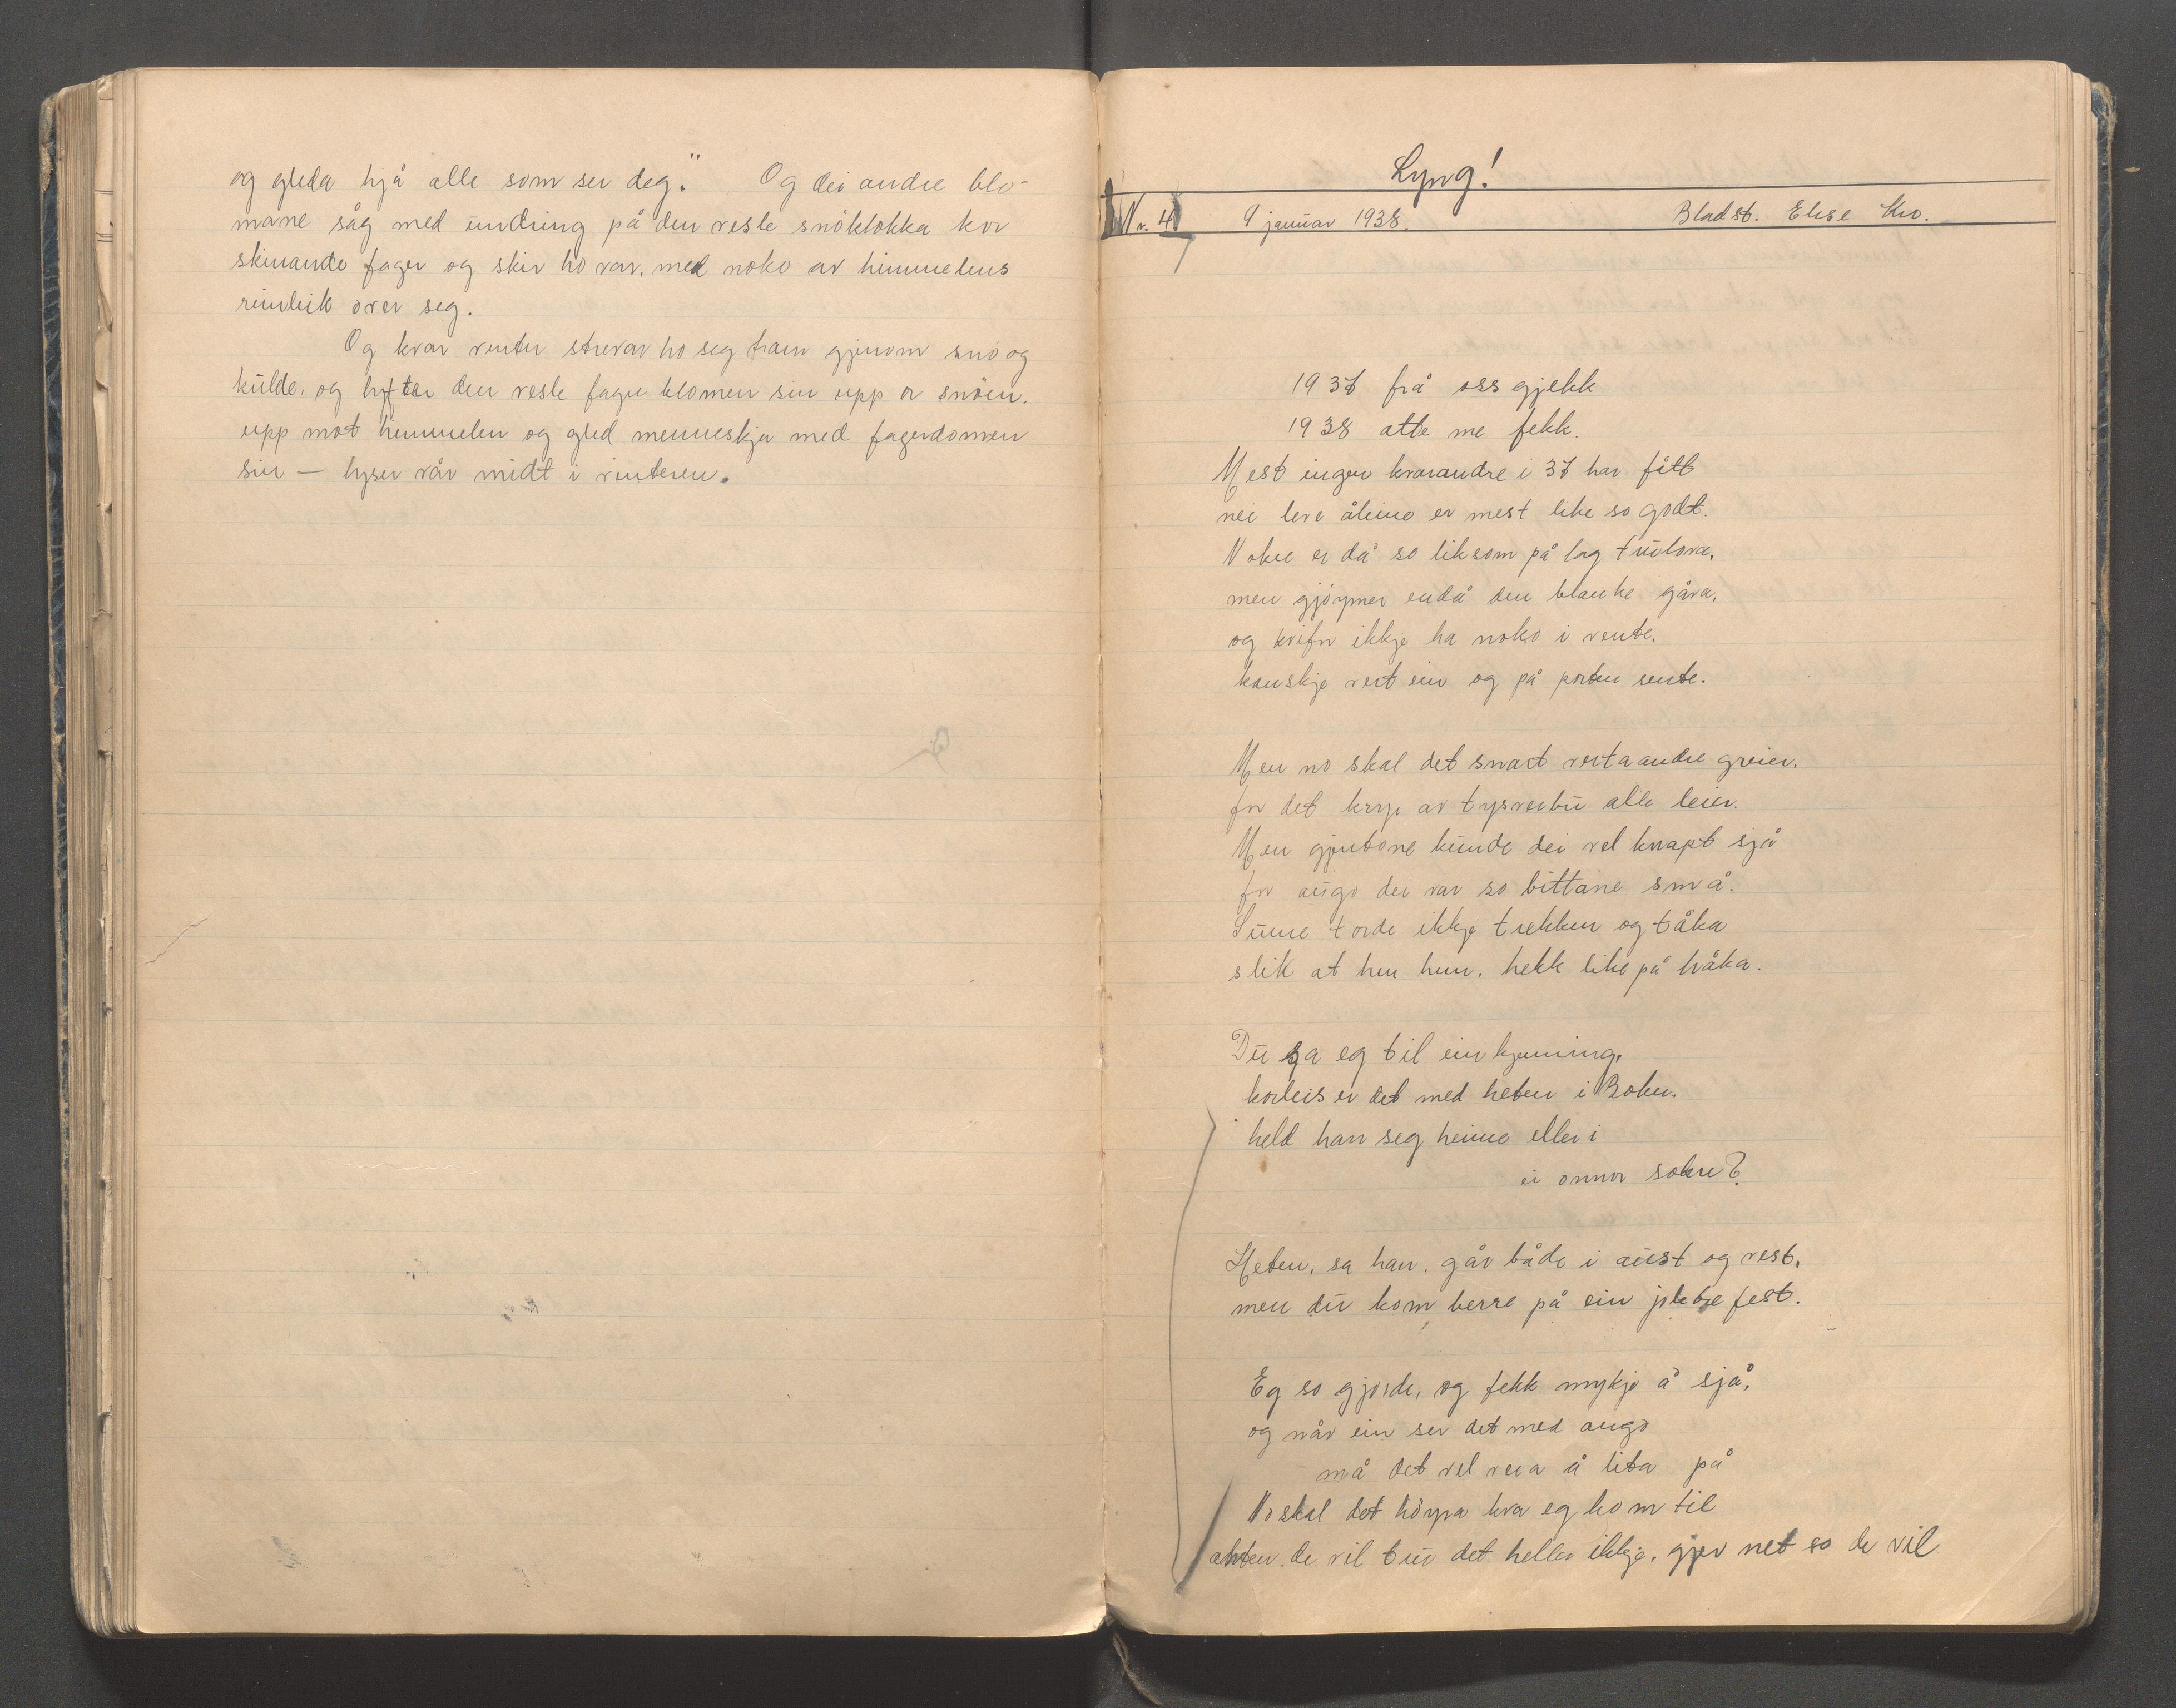 og gleda hjå alle som ser deg." Og dei andre blo-
mane såg med undring på den vesle snöklokka kor
skinande fager og skir ho var, med noko av himmelens
reinleik over seg.
Og kvar venter strevar ho seg fram gjenom snö og
kulde. og lyfter den vesle fagre blomen sin upp or snöen.
upp mot himmelen og gled menneskja med fagerdomen
sin — lyser vår midt i vinteren.
Lyng!
Nr. 4 9 januar 1938. Bladst. Elise Kro.
1937 frå oss gjekk
1938 atte me fekk.
Mest ingen kvarandre i 37 har fått
nei leve åleine er mest like so godt.
Nokre er då so liksom på lag trulova,
men gjöymer endå den blanke gåva,
og kvifor ikkje ha noko i vente.
kanskje vert ein og på porten sente.
Men no skal det snart verta andre greier,
for det kryr av tysverbu alle leier.
Men gjentone kunde dei vel knapt sjå
for augo dei var so bittane små.
Sume torde ikkje trekken og tåka
slik at hu hun. hekk like på håka.
Du sa eg til ein kjenning,
korleis er det med heten i Bokn.
held han seg heime eller i
ei onnor sokn?
Heten, sa han, går både i aust og vest,
men du kom berre på ein jletre fest.
Eg so gjorde, og fekk mykje å sjå,
og når ein ser det med augo
må det vel vera å lita på
No skal det höyra kva eg kom til
anten de vil tru det heller ikkje, gjer net so de vil